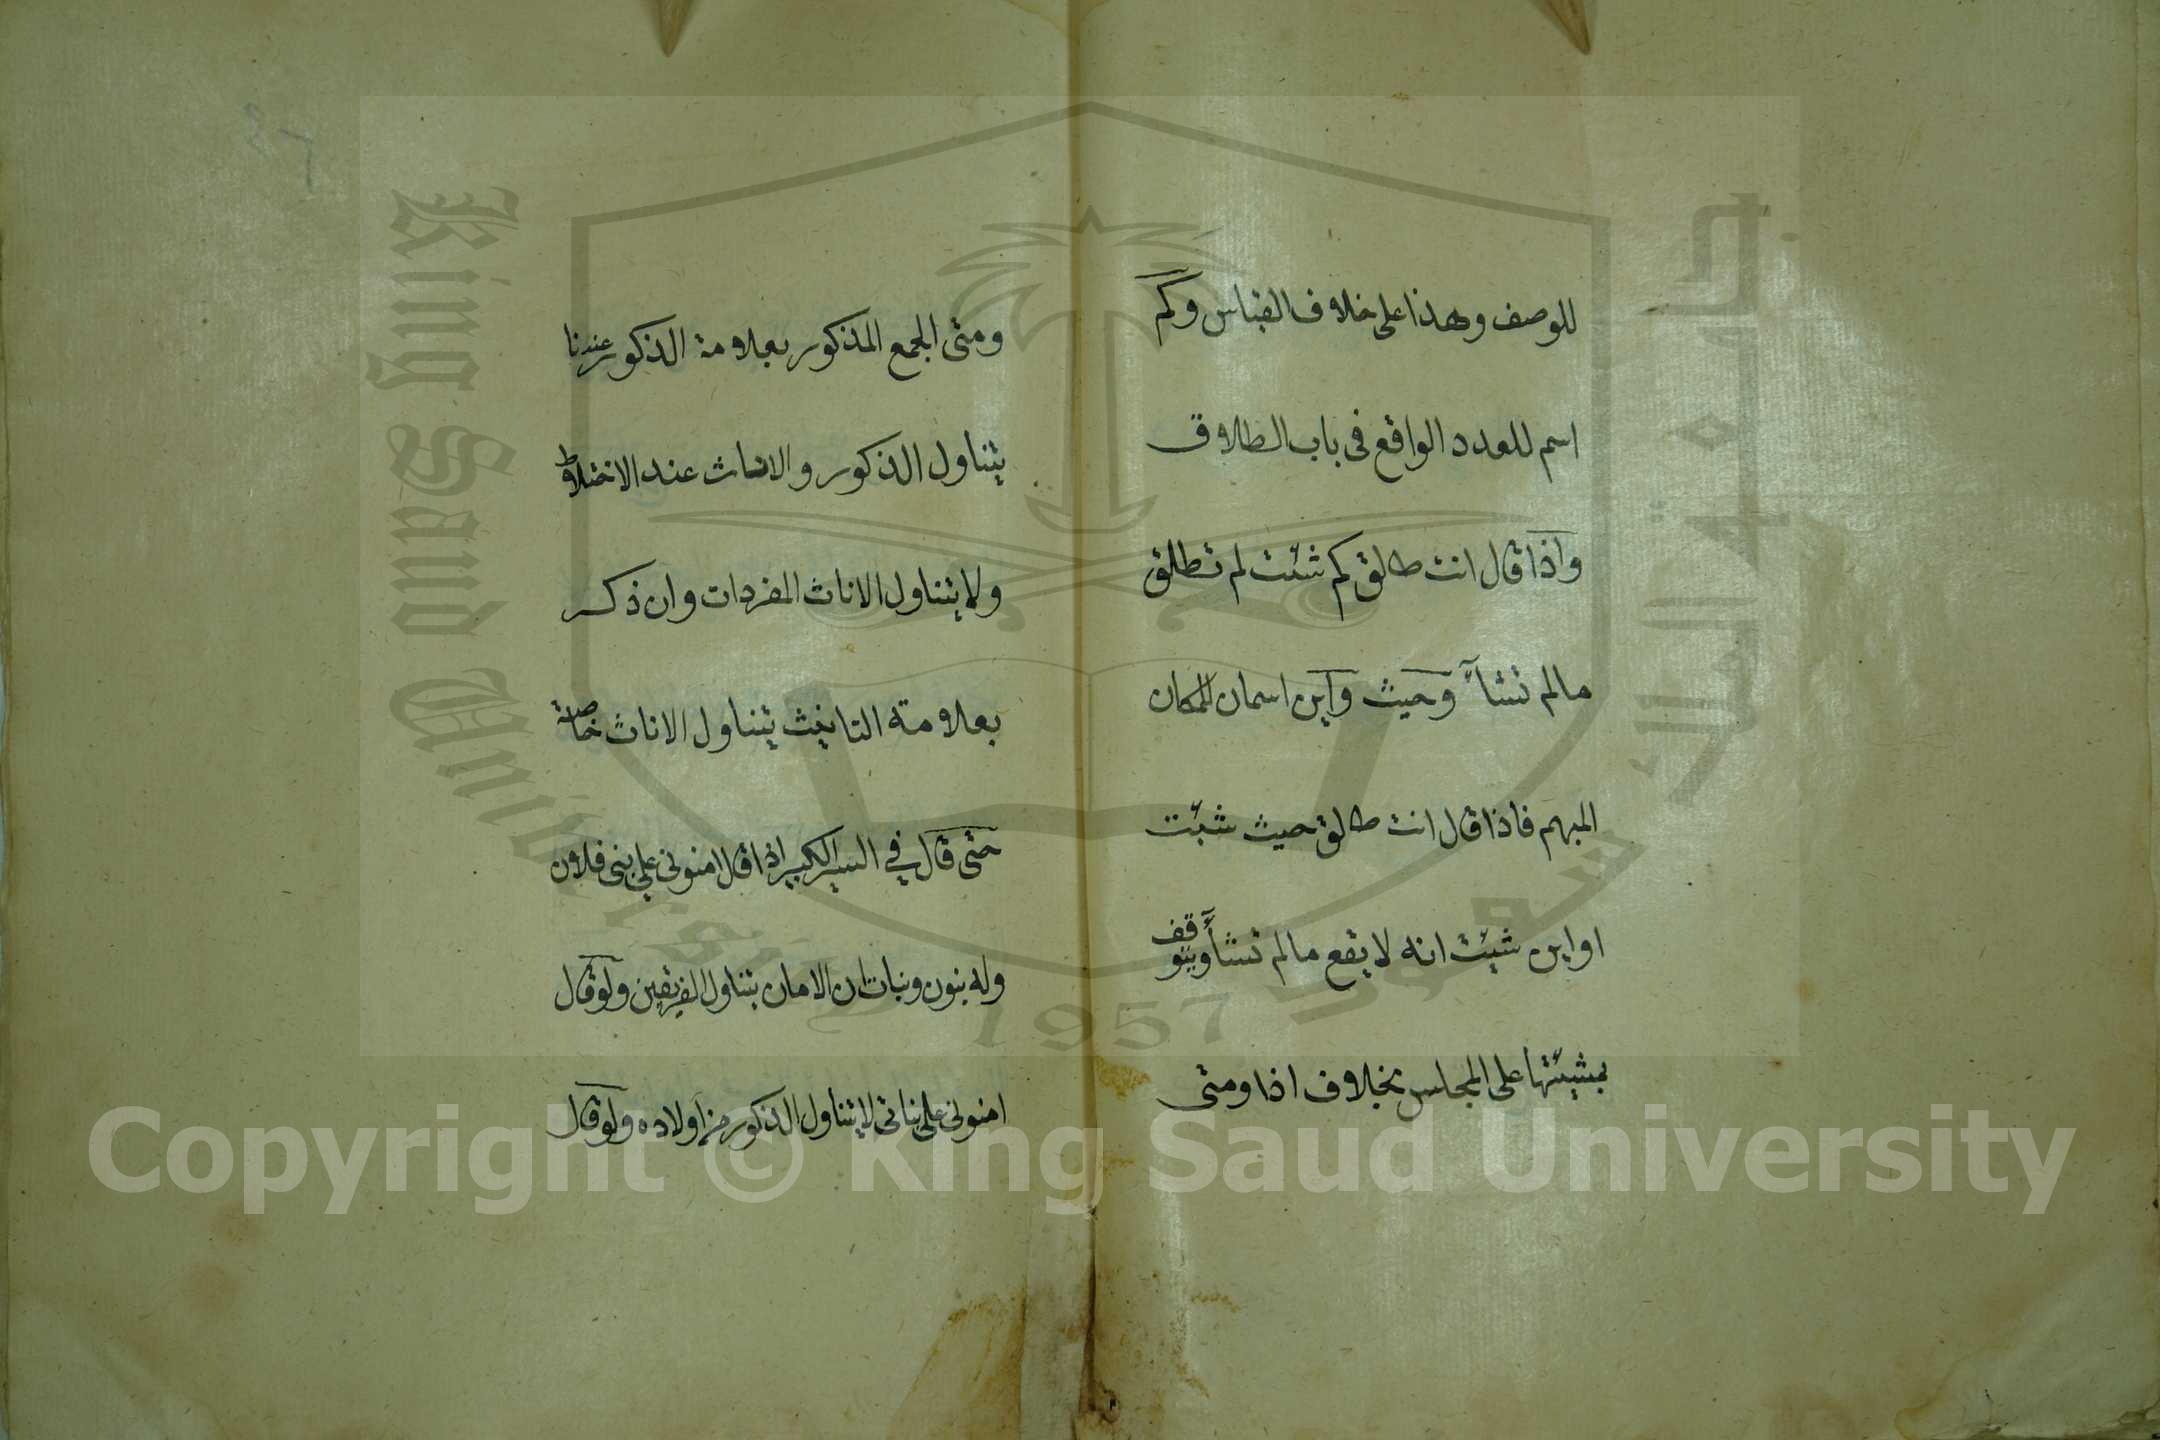 للوصف وهذا على خلاف القياس وكم
اسم للعدد الواقع فى باب الطلاق
واذا قال انت طالق كم شئت لم تطلق
مالم تشآء وحيث واين اسمان للمكان
المبهم فاذا قال انت طالق حيث شئت
او اين شئت انه لا يقع مالم تشأ ويتوقف
بمشيئتها على المجلس بخلاف اذا ومتى
ومتى الجمع المذكور بعلامة الذكور عندنا
يتناول الذكور والاناث عند الاختلاط
ولا يتناول الاناث المفردات وان ذكر
بعلامة التانيث يتناول الاناث خاصة
حتى قال في السير الكبير اذا قال امنونى على بنى فلان
وله بنون وبنات ان الامان يتناول الفريقين ولو قال
امنونى على بناتى لا يتناول الذكور من اولاده ولو قال
King Saud University
1957
Copyright © King Saud University